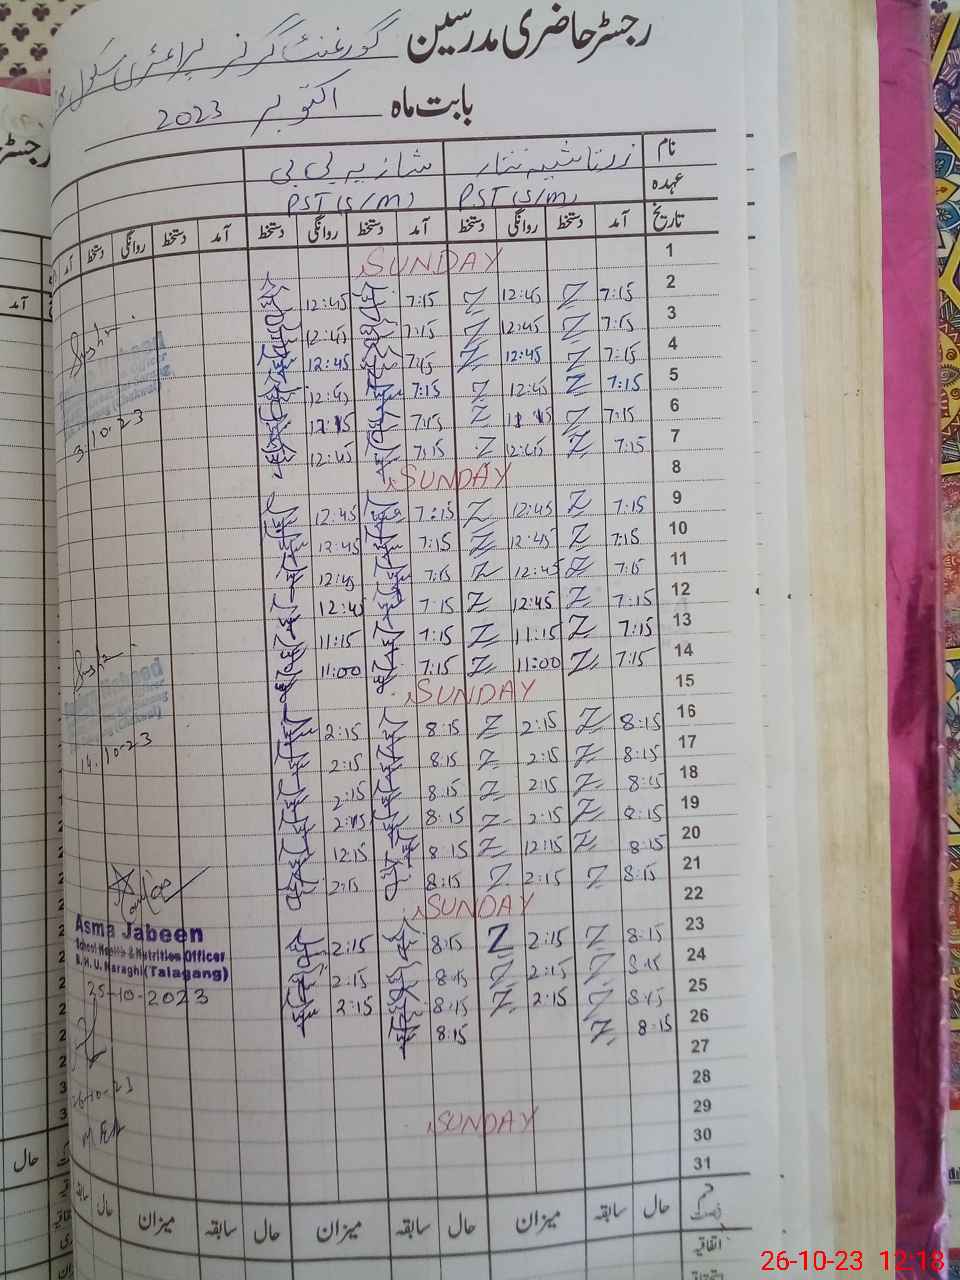 رجسٹر حاضری مدرسین گورنمنٹ گرلز پرائمری سکول
بابت ماہ اکتوبر 2023
نام شازیہ بی بی
عہدہ PST (S/M) PST (S/M)
تاریخ آمد دستخط روانگی دستخط آمد دستخط روانگی دستخط آمد دستخط روانگی دستخط آمد
1 SUNDAY
2 7:15 Z 12:45 Z 7:15 12:45
3 7:15 Z 12:45 Z 7:15 12:45
4 7:15 Z 12:45 Z 7:15 12:45
5 7:15 Z 12:45 Z 7:15 12:45
6 7:15 Z Z 7:15
7 7:15 Z 12:45 Z 7:15 12:45
3-10-23
8 SUNDAY
9 7:15 Z 12:45 Z 7:15 12:45
10 7:15 Z 12:45 Z 7:15 12:45
11 7:15 Z 12:45 Z 7:15 12:45
12 7:15 Z 12:45 Z 7:15 12:45
13 7:15 Z 11:15 Z 7:15 11:15
14 7:15 Z 11:00 Z 7:15 11:00
15 SUNDAY
14-10-23
16 8:15 Z 2:15 Z 8:15 2:15
17 8:15 Z 2:15 Z 8:15 2:15
18 8:15 Z 2:15 Z 8:15 2:15
19 8:15 Z 2:15 Z 8:15 2:15
20 8:15 Z 12:15 Z 8:15 12:15
21 8:15 Z 2:15 Z 8:15 2:15
22 SUNDAY
Asma Jabeen
School Health & Nutrition Officer
B.H.U. Naraghi (Talagang)
25-10-2023
23 8:15 Z 2:15 Z 8:15 2:15
24 8:15 Z 2:15 Z 8:15 2:15
25 8:15 Z 2:15 Z 8:15 2:15
26 8:15 Z 8:15
27
28
26-10-23
MEA
29 SUNDAY
30
31
حال سابقہ میزان حال سابقہ میزان حال سابقہ میزان حال سابقہ
قسم رخصت
اتفاقیہ
حال
26-10-23 12:18